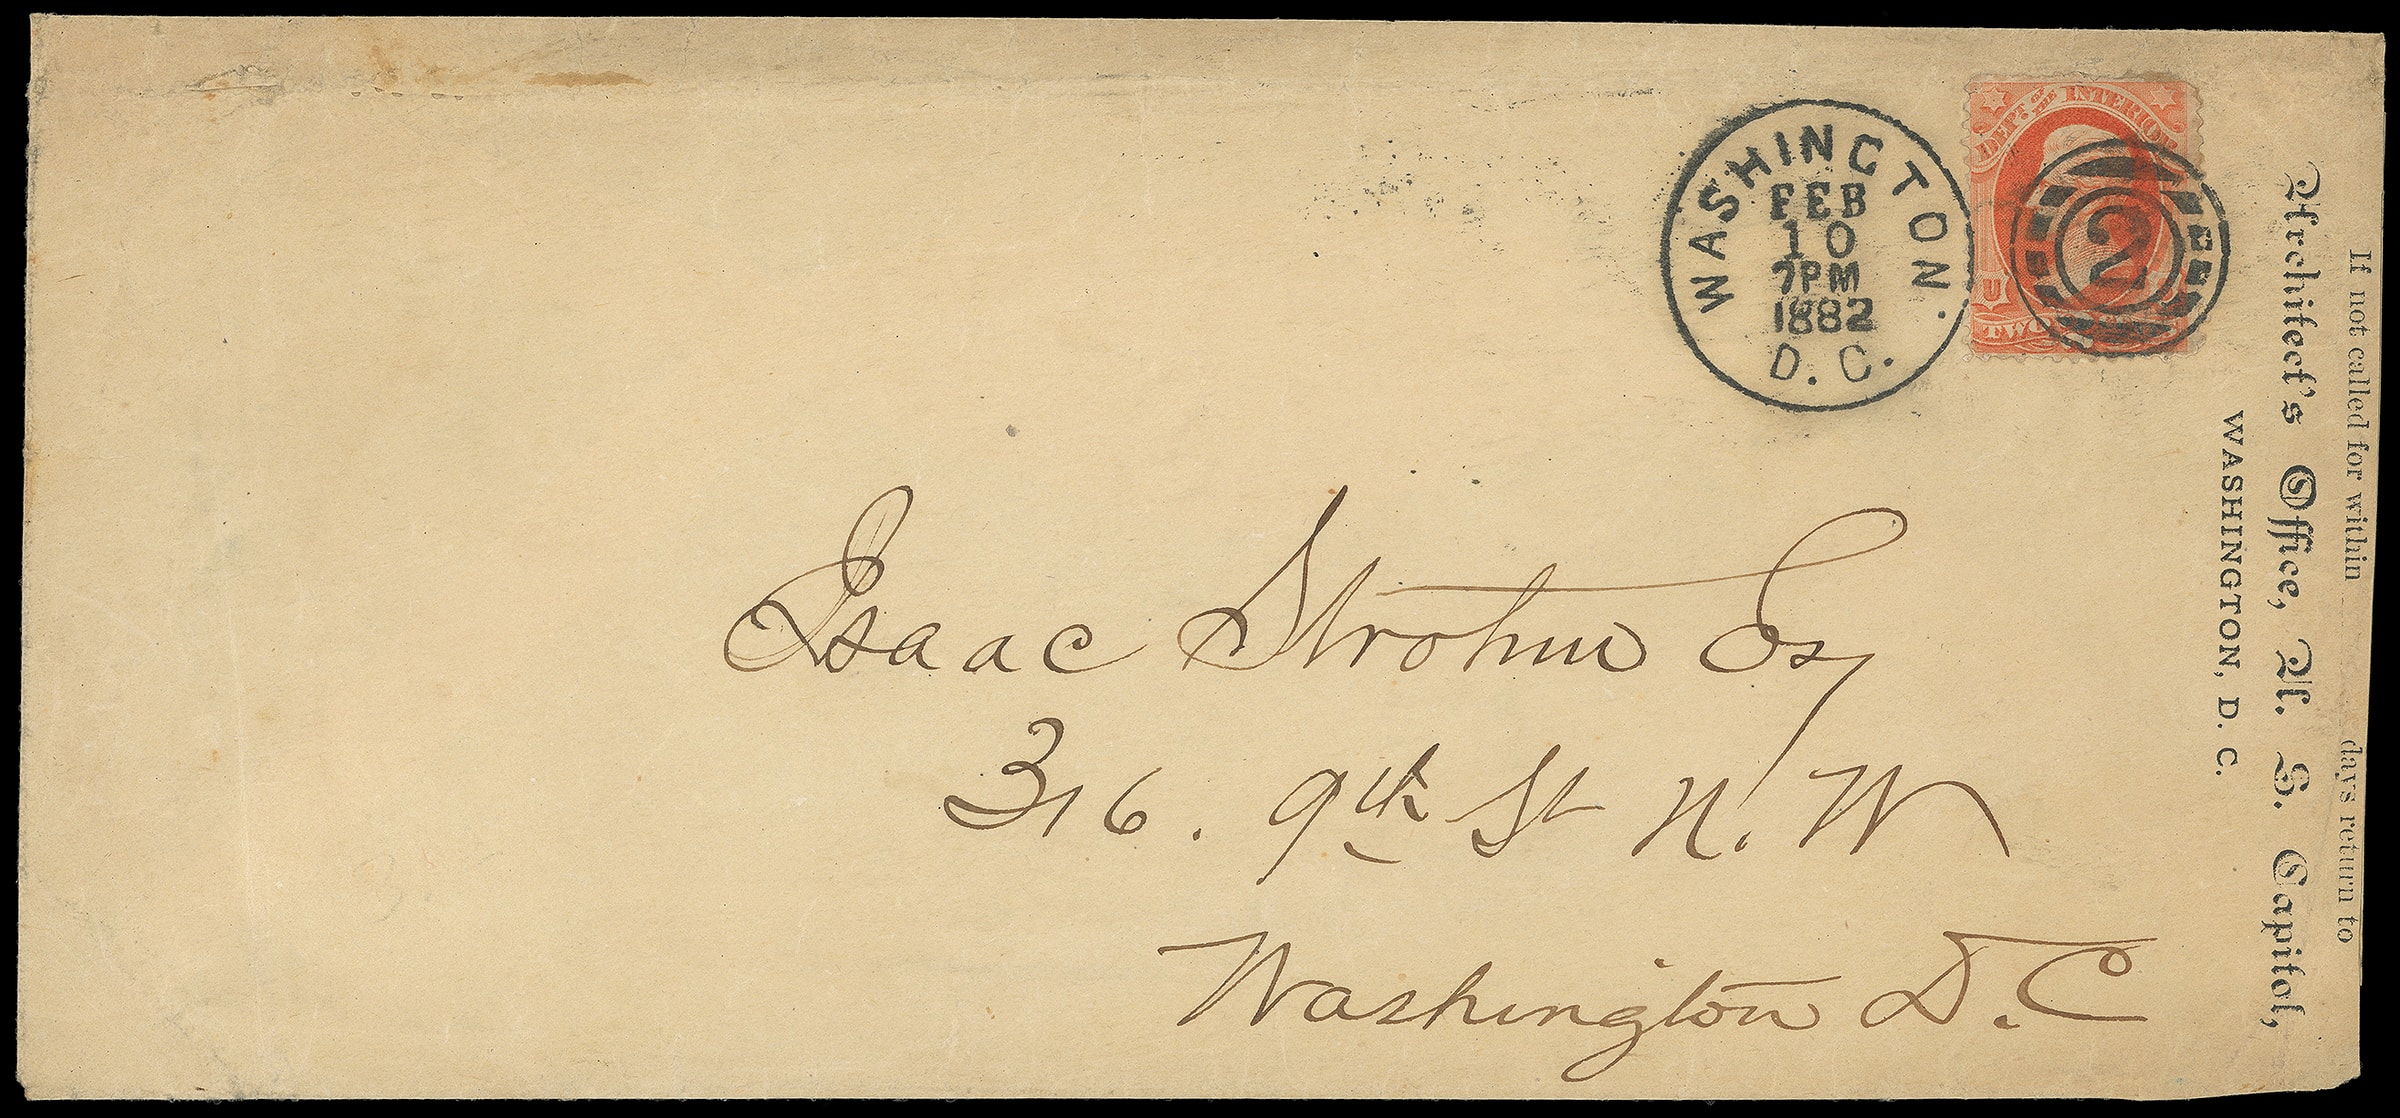 WASHINGTON.
FEB
10
7PM
1882
D. C.
DEPT. OF THE INTERIOR
2
U
TWO
If not called for within days return to
Architect's Office, U. S. Capitol,
WASHINGTON, D. C.
Isaac Strohm Esq
316. 9th St N. W
Washington D. C